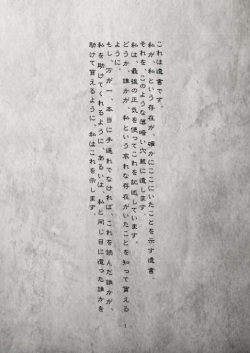 これは遺書です。
私が、私という存在が、確かにここにいたことを示す遺書。
それを、このような薄暗い穴蔵に遺します。
私は、最後の正気を使ってこれを記述しています。
どうか、誰かが、私という哀れな存在がいたことを知って貰える
ように。
もし、万が一、本当に手遅れでなければ、これを読んだ誰かが、
私を助けてくれるように、あるいは、私と同じ目に遭った誰かを
助けて貰えるように、私はこれを示します。
1